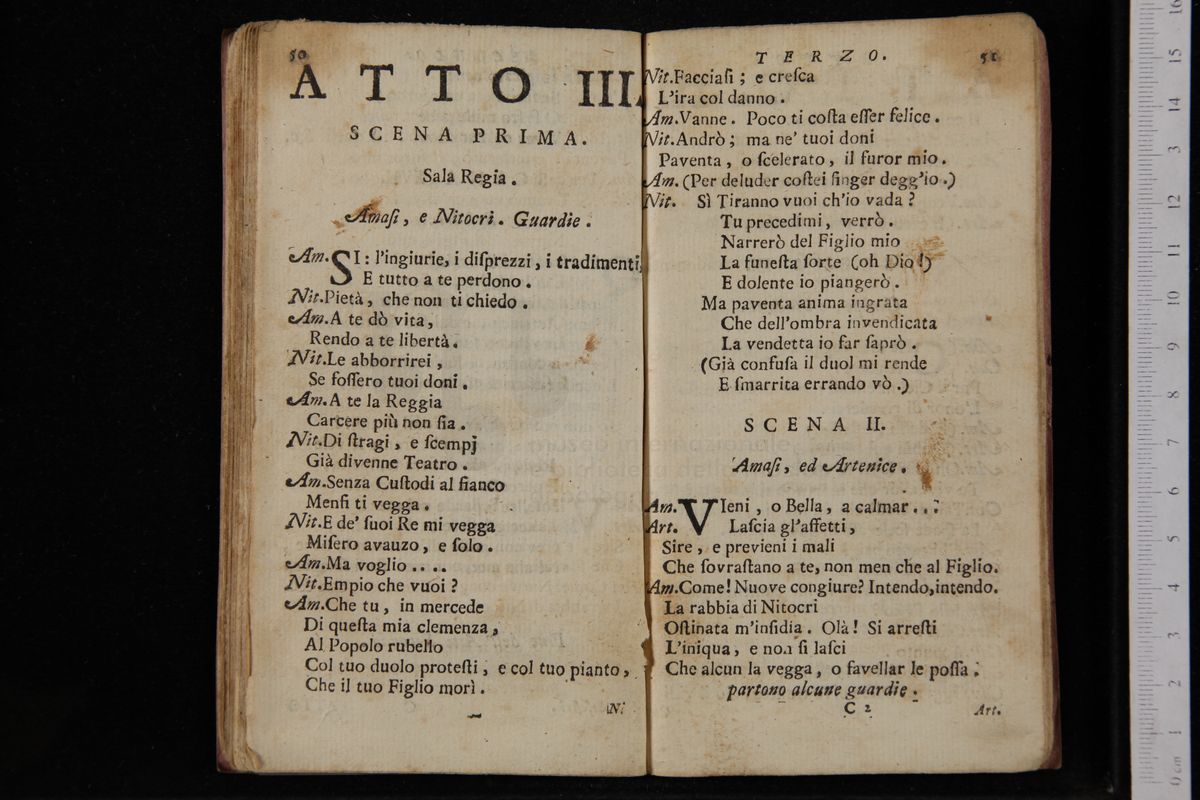 50
ATTO III.
SCENA PRIMA.
Sala Regia.
Amaſi, e Nitocri. Guardie.
Am. SI: l'ingiurie, i diſprezzi, i tradimenti,
E tutto a te perdono.
Nit. Pietà, che non ti chiedo.
Am. A te dò vita,
Rendo a te libertà.
Nit. Le abborrirei,
Se foſſero tuoi doni.
Am. A te la Reggia
Carcere più non ſia.
Nit. Di ſtragi, e ſcempj
Già divenne Teatro.
Am. Senza Cuſtodi al fianco
Menfi ti vegga.
Nit. E de' ſuoi Re mi vegga
Miſero avauzo, e ſolo.
Am. Ma voglio ....
Nit. Empio che vuoi?
Am. Che tu, in mercede
Di queſta mia clemenza,
Al Popolo rubello
Col tuo duolo proteſti, e col tuo pianto,
Che il tuo Figlio morì.
Ni
TERZO. 51
Nit. Facciaſi; e creſca
L'ira col danno.
Am. Vanne. Poco ti coſta eſſer felice.
Nit. Andrò; ma ne' tuoi doni
Paventa, o ſcelerato, il furor mio.
Am. (Per deluder coſtei finger degg'io.)
Nit. Sì Tiranno vuoi ch'io vada?
Tu precedimi, verrò.
Narrerò del Figlio mio
La funeſta ſorte (oh Dio!)
E dolente io piangerò.
Ma paventa anima ingrata
Che dell'ombra invendicata
La vendetta io far ſaprò.
(Già confuſa il duol mi rende
E ſmarrita errando vò.)
SCENA II.
Amaſi, ed Artenice.
Am. VIeni, o Bella, a calmar...
Art. Laſcia gl'affetti,
Sire, e previeni i mali
Che ſovraſtano a te, non men che al Figlio.
Am. Come! Nuove congiure? Intendo, intendo.
La rabbia di Nitocri
Oſtinata m'inſidia. Olà! Si arreſti
L'iniqua, e non ſi laſci
Che alcun la vegga, o favellar le poſſa.
partono alcune guardie.
C 2 Art.